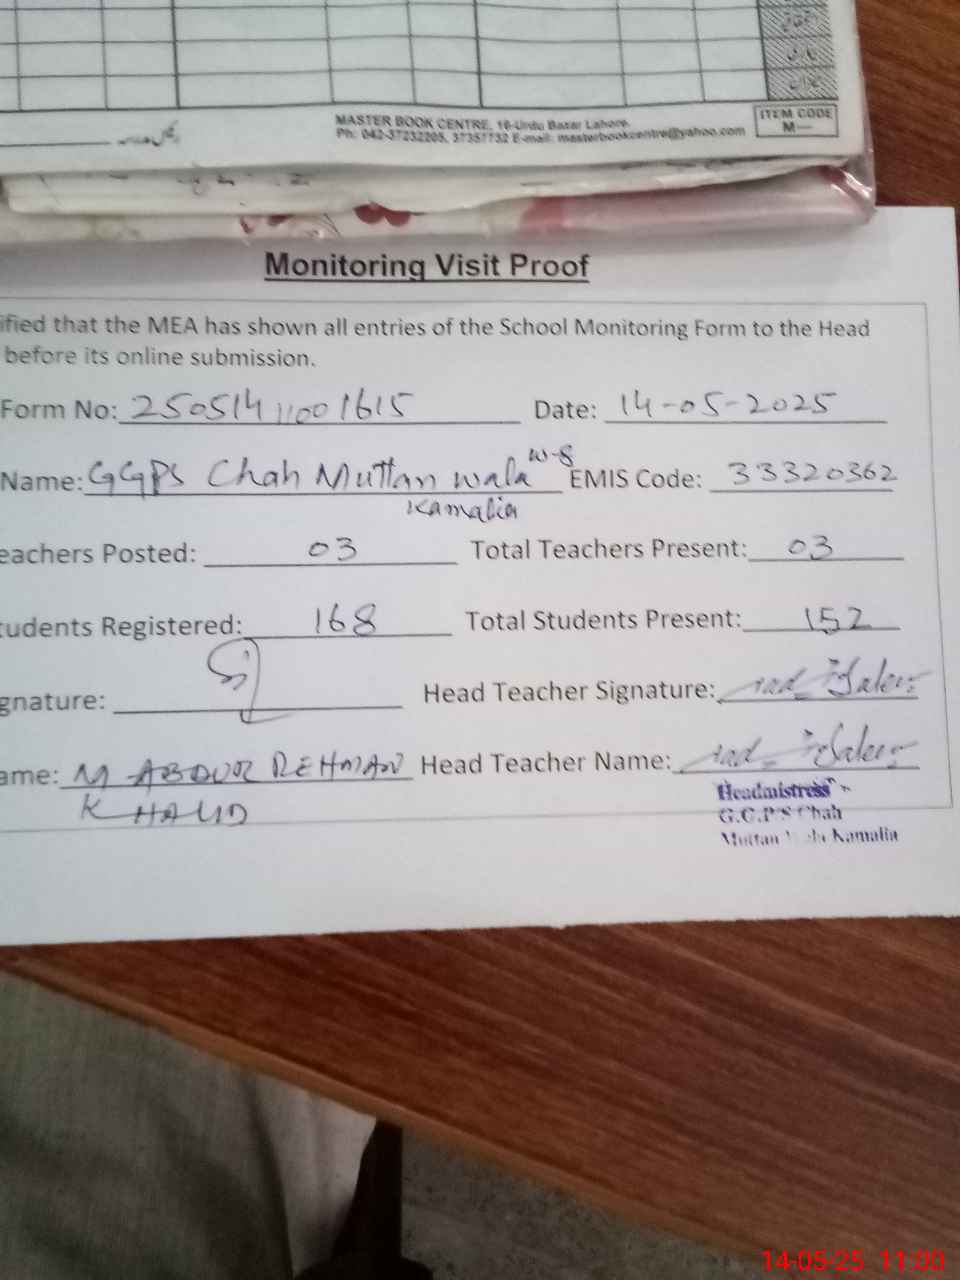 MASTER BOOK CENTRE, 16-Urdu Bazar Lahore.
Ph: 042-37232205, 37357732 E-mail: masterbookcentre@yahoo.com
ITEM CODE
M—
Monitoring Visit Proof
ified that the MEA has shown all entries of the School Monitoring Form to the Head
before its online submission.
Form No: 25051411001615 Date: 14-05-2025
Name: GGPS Chah Muttan wala W-8 EMIS Code: 33320362
Kamalia
eachers Posted: 03 Total Teachers Present: 03
tudents Registered: 168 Total Students Present: 152
gnature: Head Teacher Signature:
ame: M ABDUR REHMAN Head Teacher Name:
KHALID
Headmistress
G.G.P.S Chah
Muttan Wala Kamalia
14-05-25 11:00